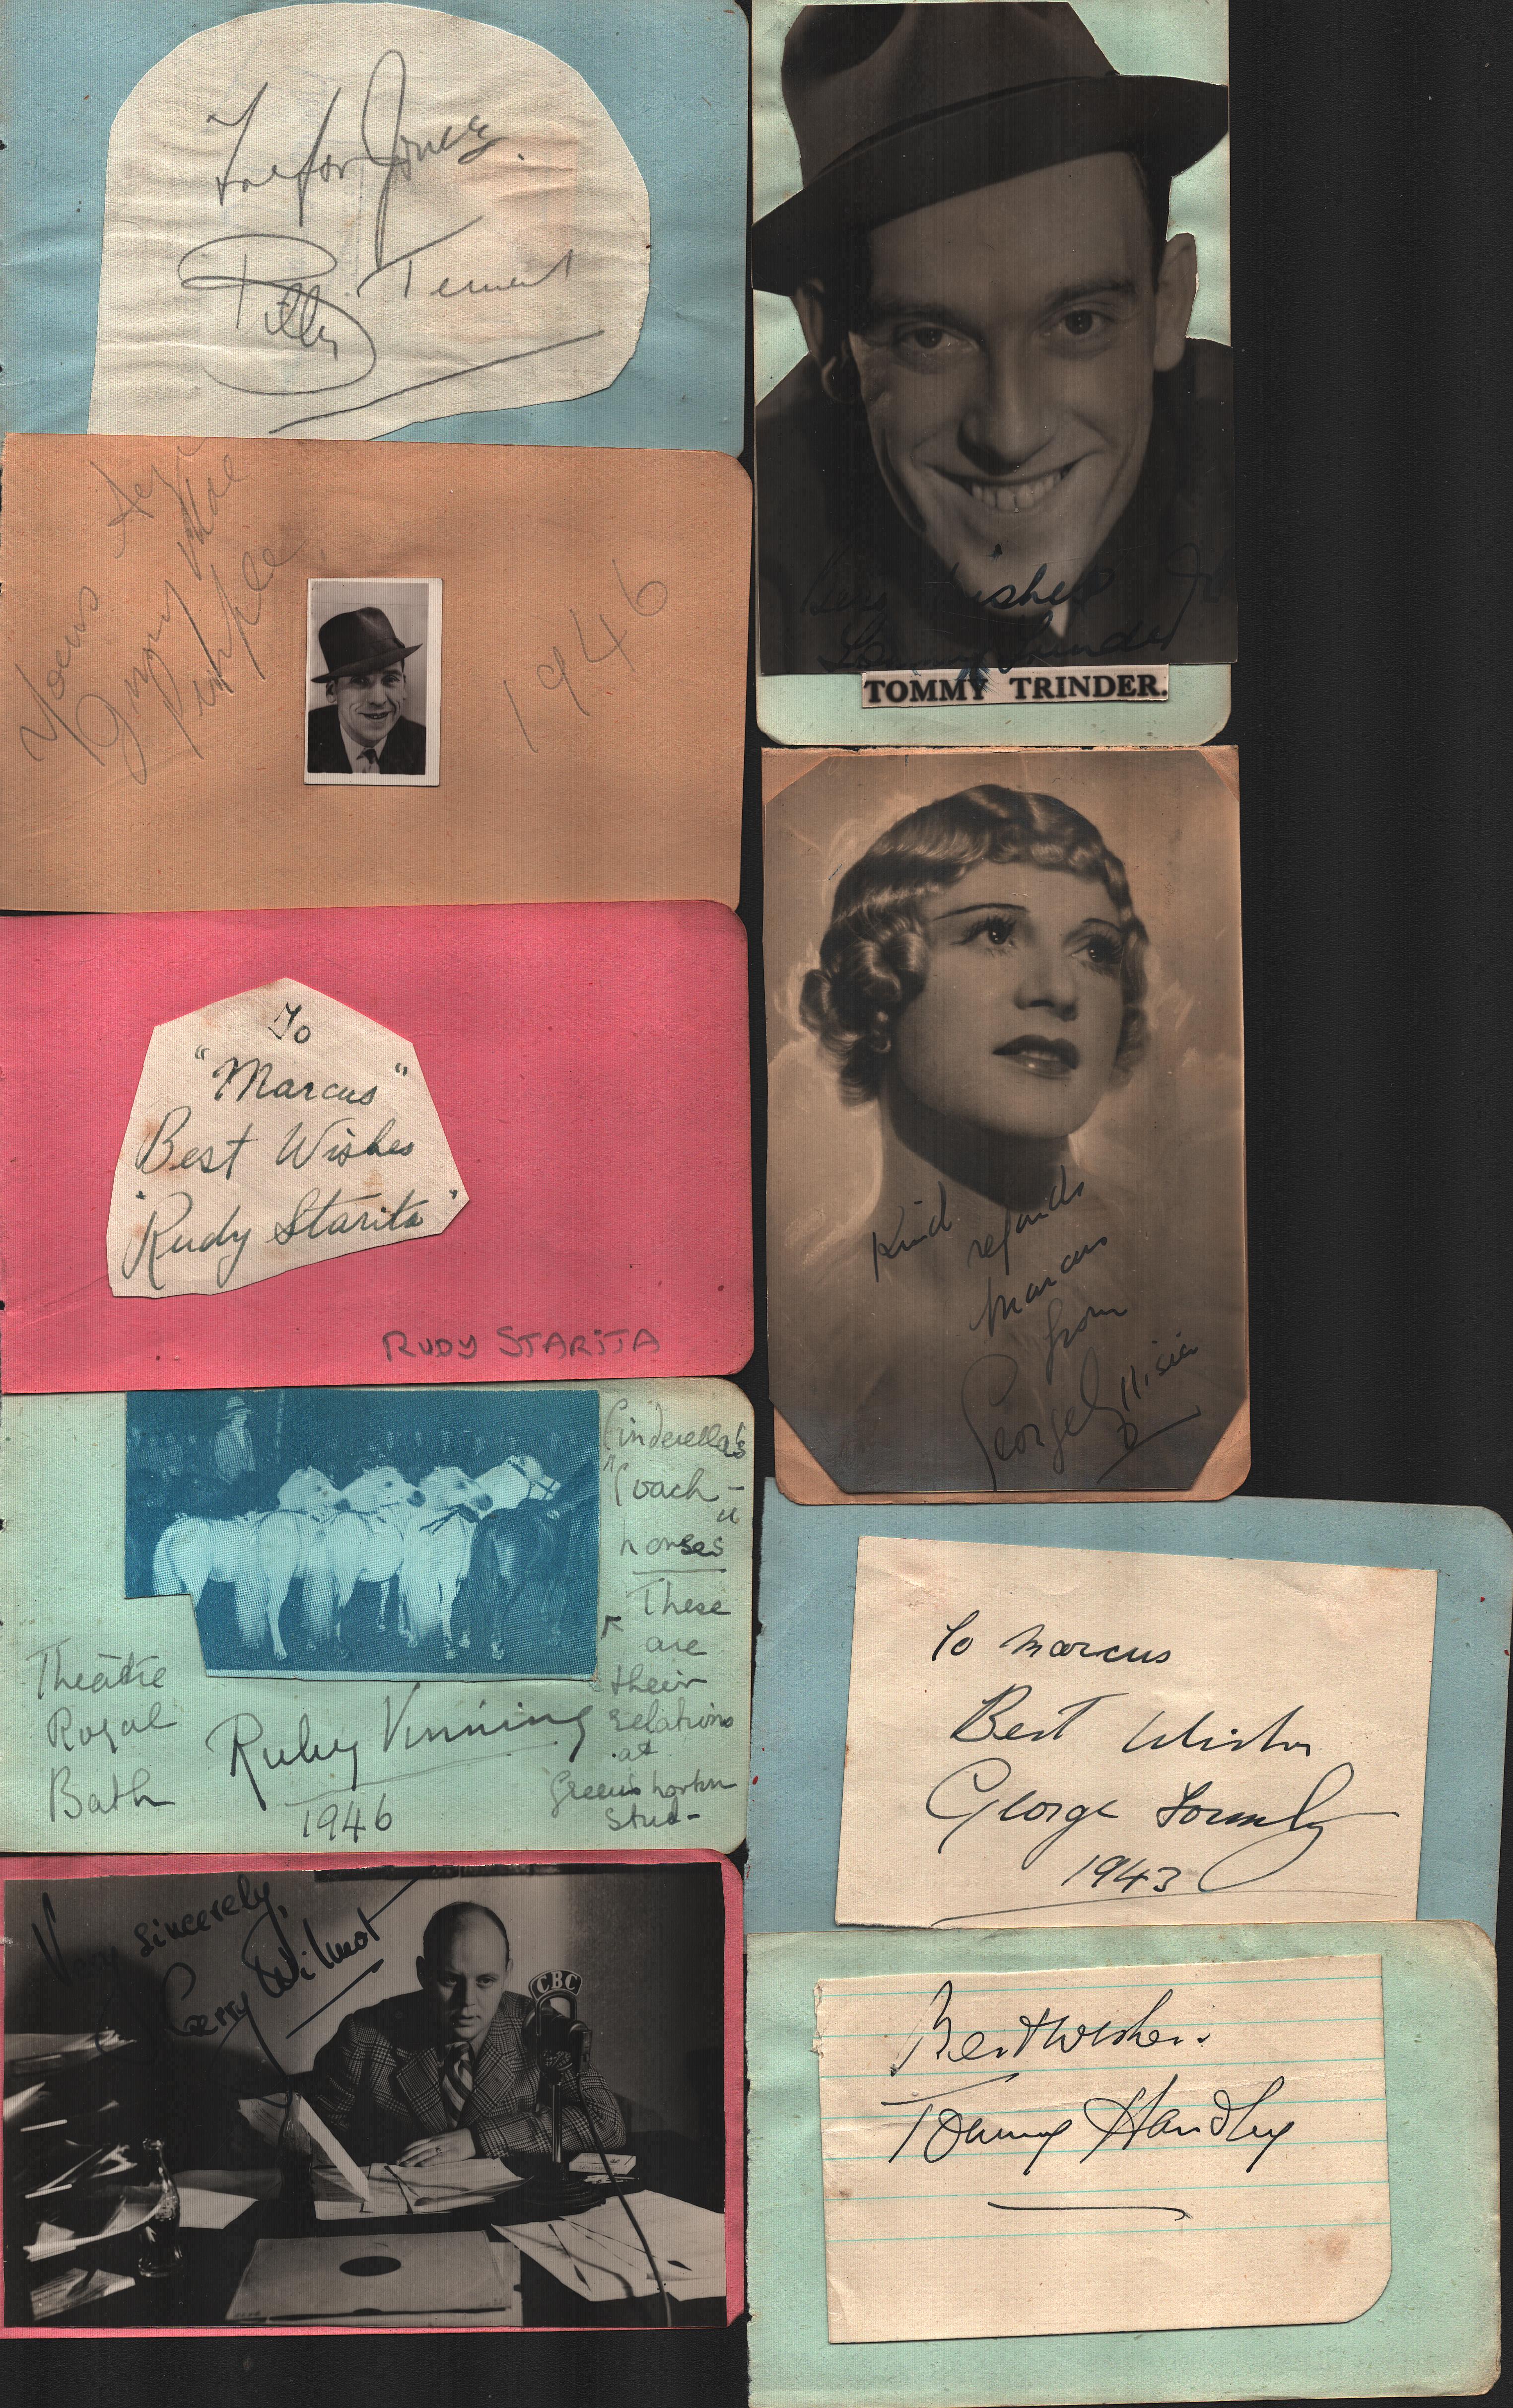 Trefor Jones.
Billy Ternent
Yours Aye
Jimmy Mac
1946
To
"Marcus"
Best Wishes
"Rudy Starita"
RUDY STARITA
Cinderella's
"Coach-
horses"
These
are
their
relations
at
Stud-
Theatre
Royal
Bath
Ruby Vinning
1946
Very sincerely,
Gerry Wilmot
CBC
Best Wishes
Tommy Trinder
TOMMY TRINDER.
Kind regards
Marcus
from
Georgel
To Marcus
Best Wishes
George Formby
1943
Best wishes
Tommy Handley